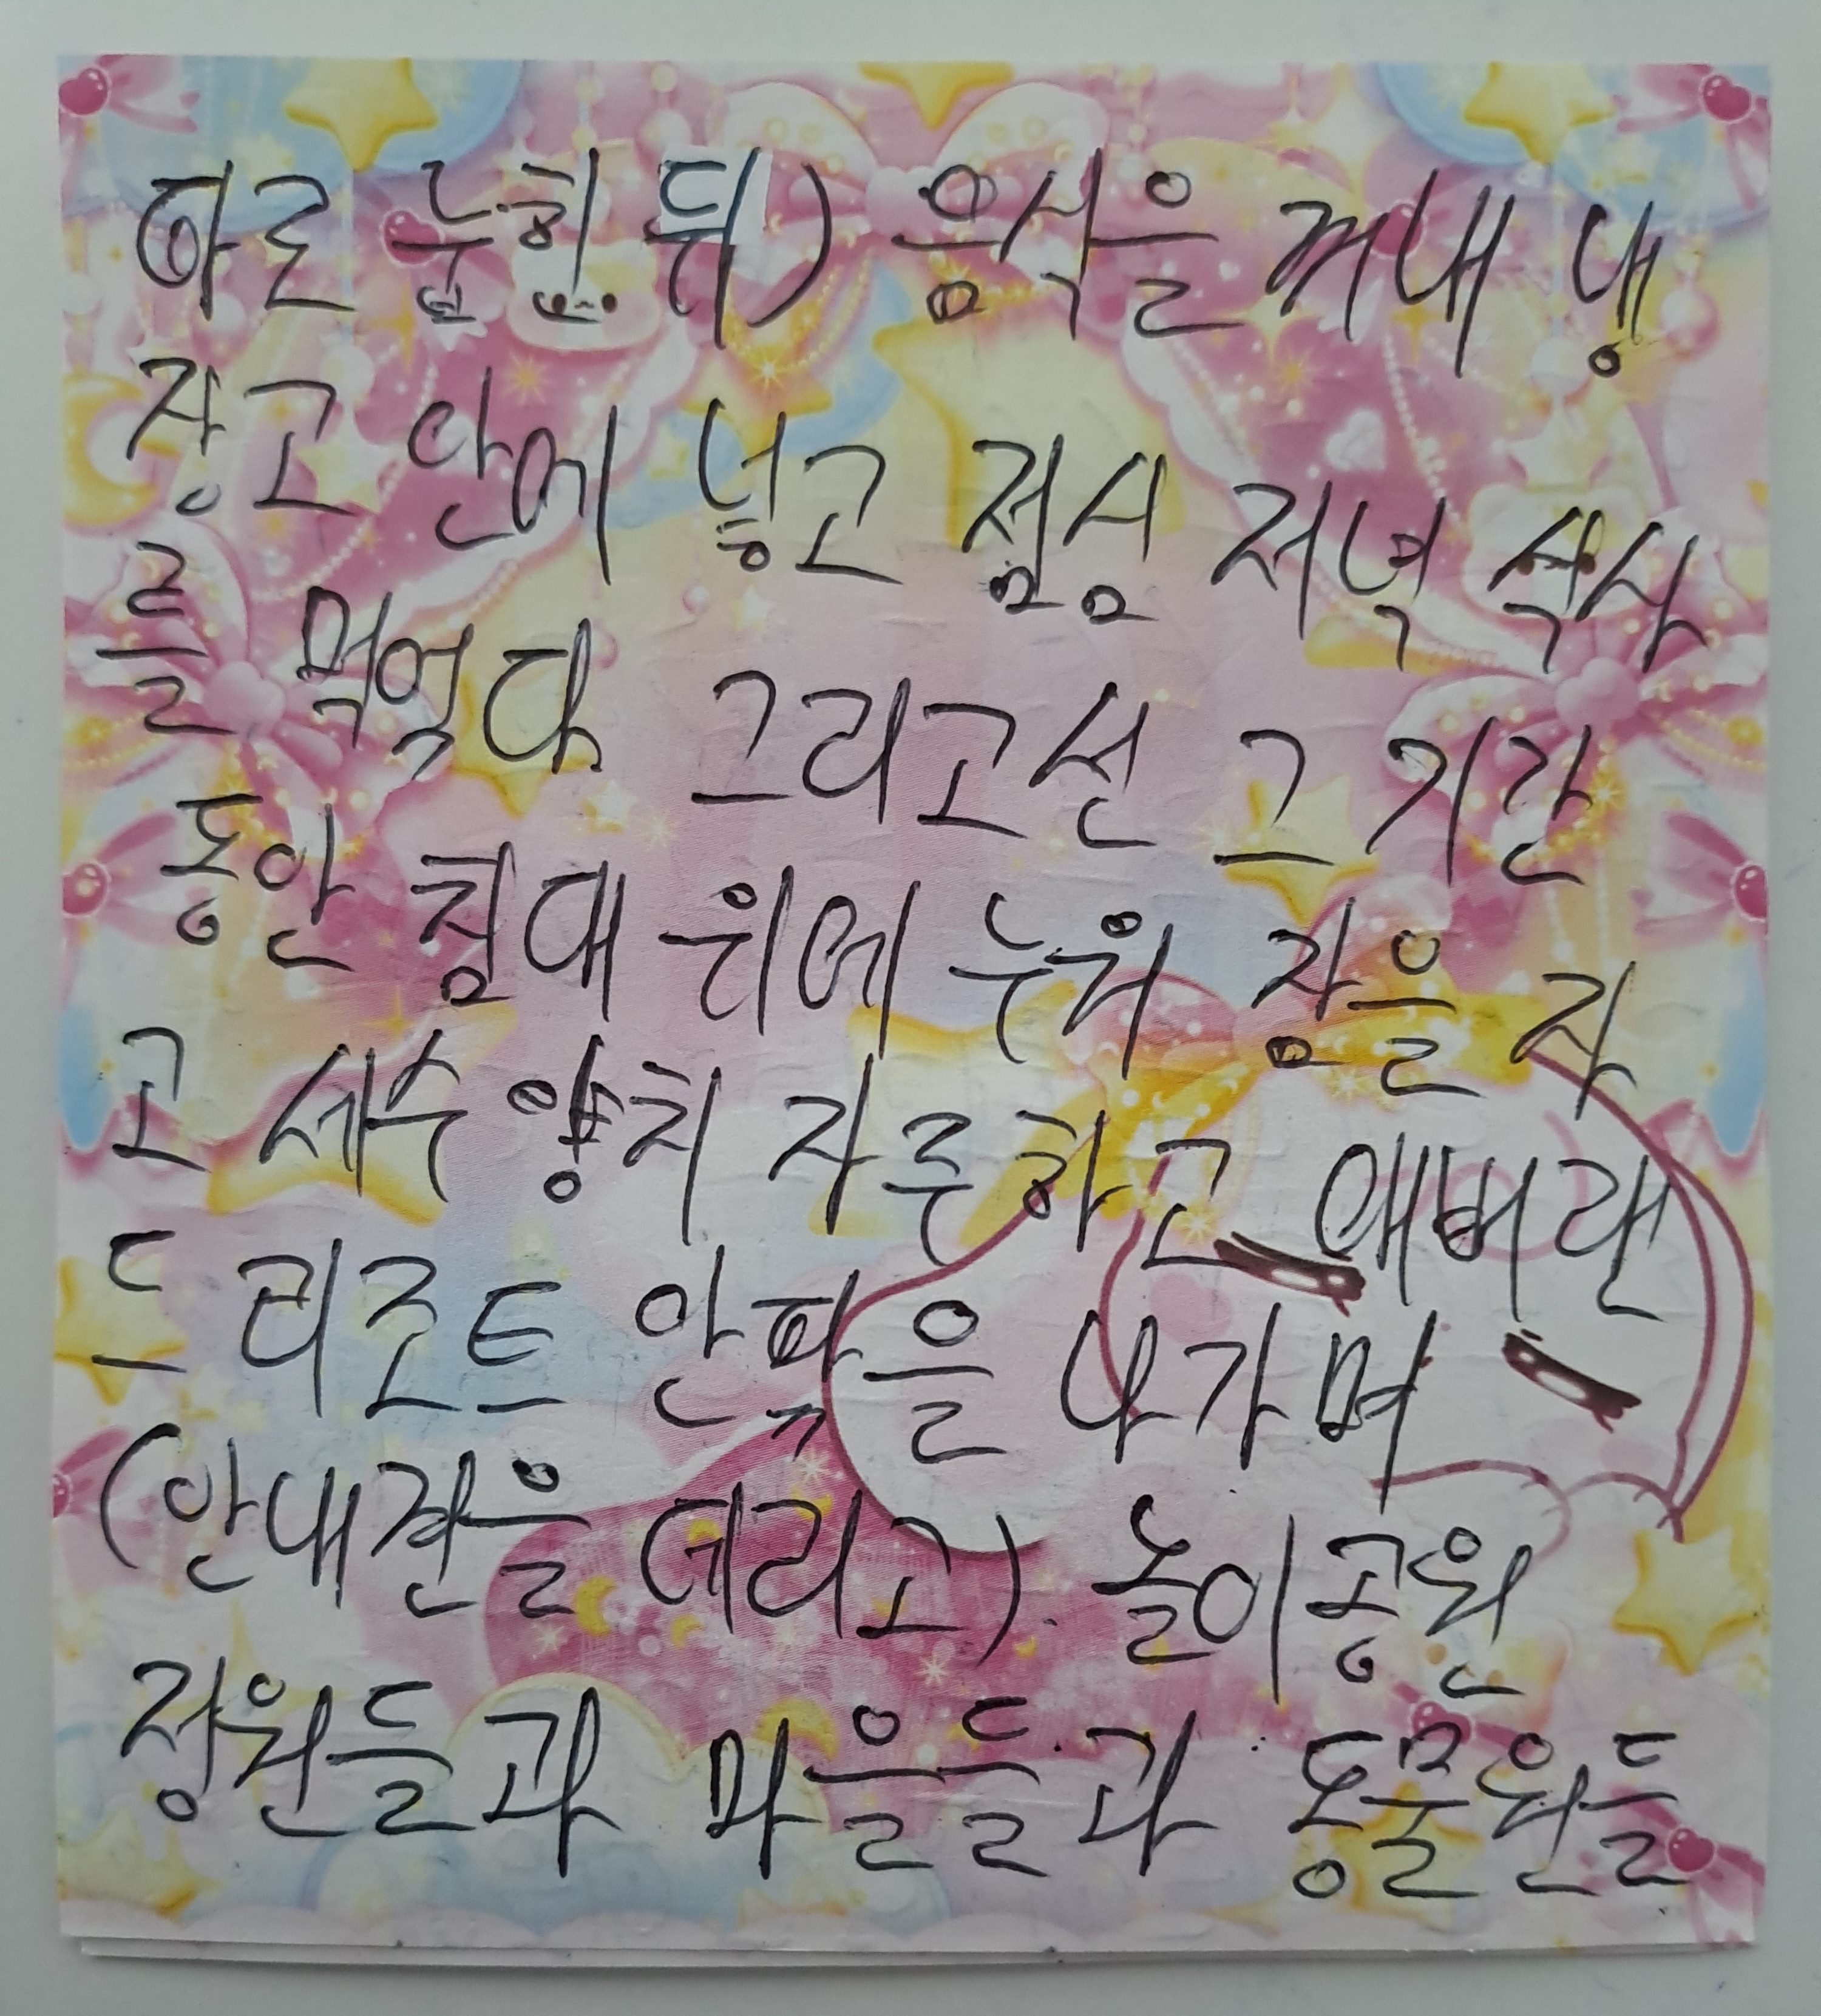 따로 눕힌 뒤) 음식을 꺼내 냉
장고 안에 넣고 점심 저녁 식사
를 먹었다. 그리고선 그 기간
동안 침대 위에 누워 잠을 자
고 세수 양치 자주하고 애버랜
드 리조트 안팎을 나가며
(안내견을 데리고). 놀이공원
정원들과 마을들과 동물원들